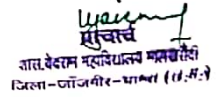 प्राचार्य
शास. वेदराम महाविद्यालय मालखरौदी
जिला-जाँजगीर-चाम्पा (छ.ग.)